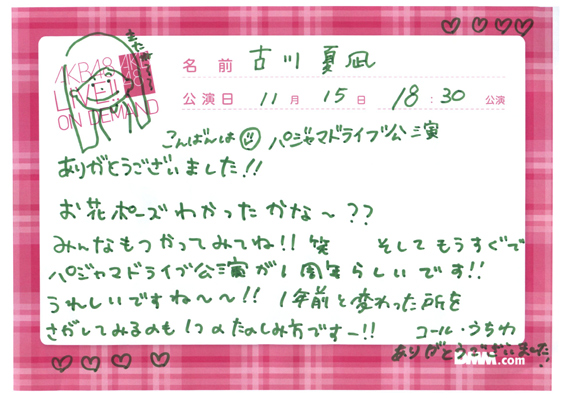 またがー!
AKB48
LIVE!!
ON DEMAND
AKB48
名前 古川夏凪
公演日 11月15日 18:30公演
こんばんは パジャマドライブ公演
ありがとうございました!!
お花ポーズわかったかな〜??
みんなもつかってみてね!!笑 そしてもうすぐで
パジャマドライブ公演が1周年らしいです!!
うれしいですね〜〜!! 1年前と変わった所を
さがしてみるのも1つのたのしみ方ですー!! コール・うちわ
ありがとうございました!
DMM.com